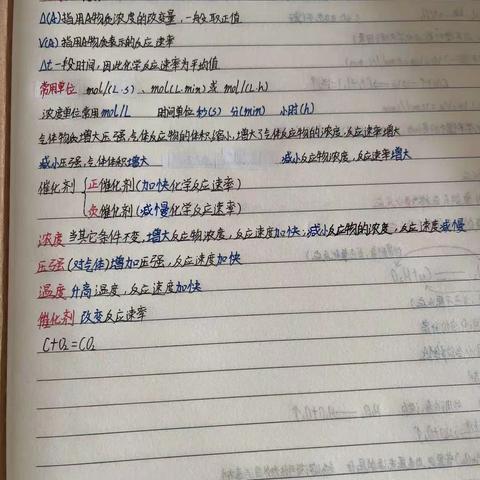 Δ(A)指用A物质浓度的改变量，一般取正值
V(A)指用A物质表示的反应速率
Δt一段时间，因此化学反应速率为平均值
常用单位 mol/(L·s)、mol/(L·min)或 mol/(L·h)
浓度单位常用mol/L 时间单位秒(s) 分(min) 小时(h)
气体物质增大压强，气体反应物的体积缩小，增大了气体反应物的浓度，反应速率增大
减小压强，气体体积增大 减小反应物浓度，反应速率增大
催化剂 { 正催化剂(加快化学反应速率)
负催化剂(减慢化学反应速率)
浓度 当其它条件不变，增大反应物浓度，反应速度加快；减小反应物的浓度，反应速度减慢
压强(对气体)增加压强，反应速度加快
温度 升高温度，反应速度加快
催化剂 改变反应速率
C+O₂=CO₂